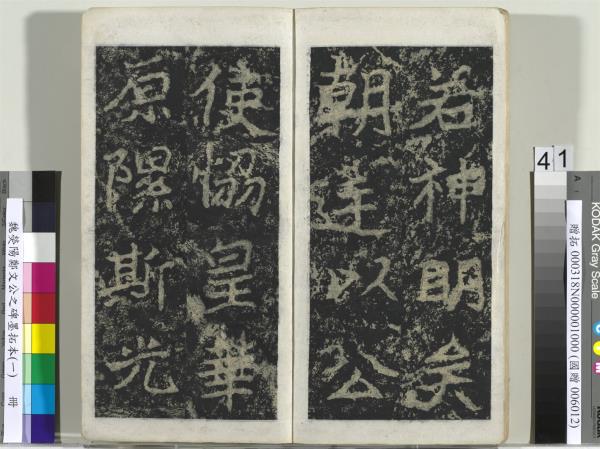 若神明矣
朝廷以公
使恊皇華
原隰斯光
魏滎陽鄭文公之碑墨拓本(一) 冊
41
贈拓 000318N000001000 (國贈 006012)
KODAK Gray Scale
A 1
M